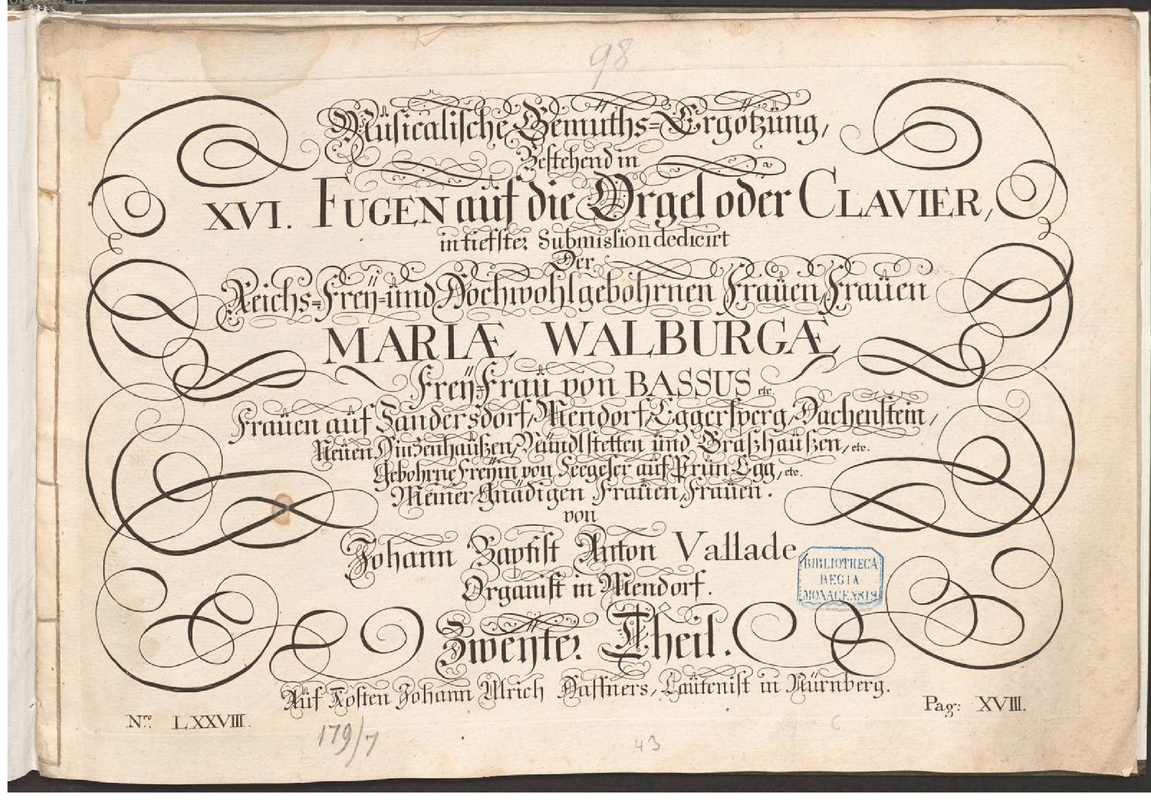 98
Müsicalische Gemüths-Ergötzüng,
Bestehend in
XVI. FUGEN auf die Orgel oder CLAVIER,
in tiefster Submission dedicirt
Der
Reichs-Freÿ-ünd Hochwohlgebohrnen Fraüen, Fraüen
MARIÆ WALBURGÆ
Freÿ-Fraü von BASSUS etc.
Fraüen auf Sandersdorf, Mendorf, Eggersperg, Dachenstein,
Neuen Hinzenhaüßen, und Graßhaüßen, etc.
Gebohrne Freÿin von Seegeser auf Prün Egg, etc.
Meiner Gnädigen Fraüen, Fraüen.
von
Johann Baptist Anton Vallade
Organist in Mendorf.
BIBLIOTHECA
REGIA
MONACENSIS
Zweÿter Theil.
Aüf Kosten Johann Ulrich Haffners, Laütenist in Nürnberg.
Nro. LXXVIII.
Pag: XVIII.
179/7
43